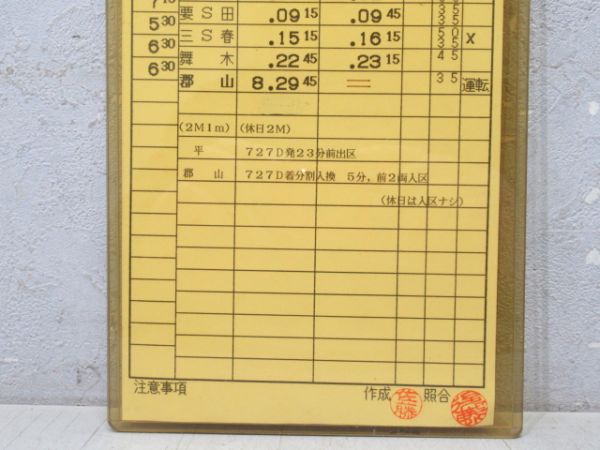 要S田 .09 15 .09 45 3 5
5 30
三S春 .15 15 .16 15 X
6 30
舞木 .22 45 .23 15 4 5
6 30
郡山 8.29 45 = 3 5 運転
(2M1m) (休日2M)
平 727D発23分前出区
郡山 727D着分割入換 5分,前2両入区
(休日は入区ナシ)
注意事項 作成 佐藤 照合